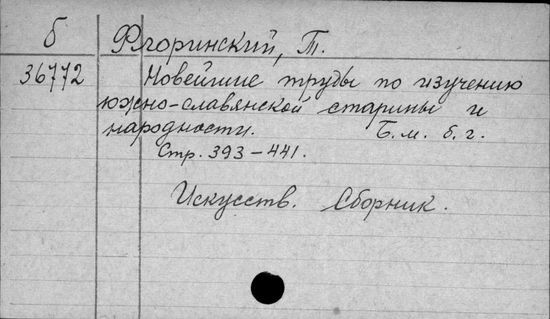 б Флоринский, Т.
36772 Новейшие труды по изучению
южно-славянской старины и
народности. Б.м. б.г.
Стр. 393-441.
Искусств. Сборник.